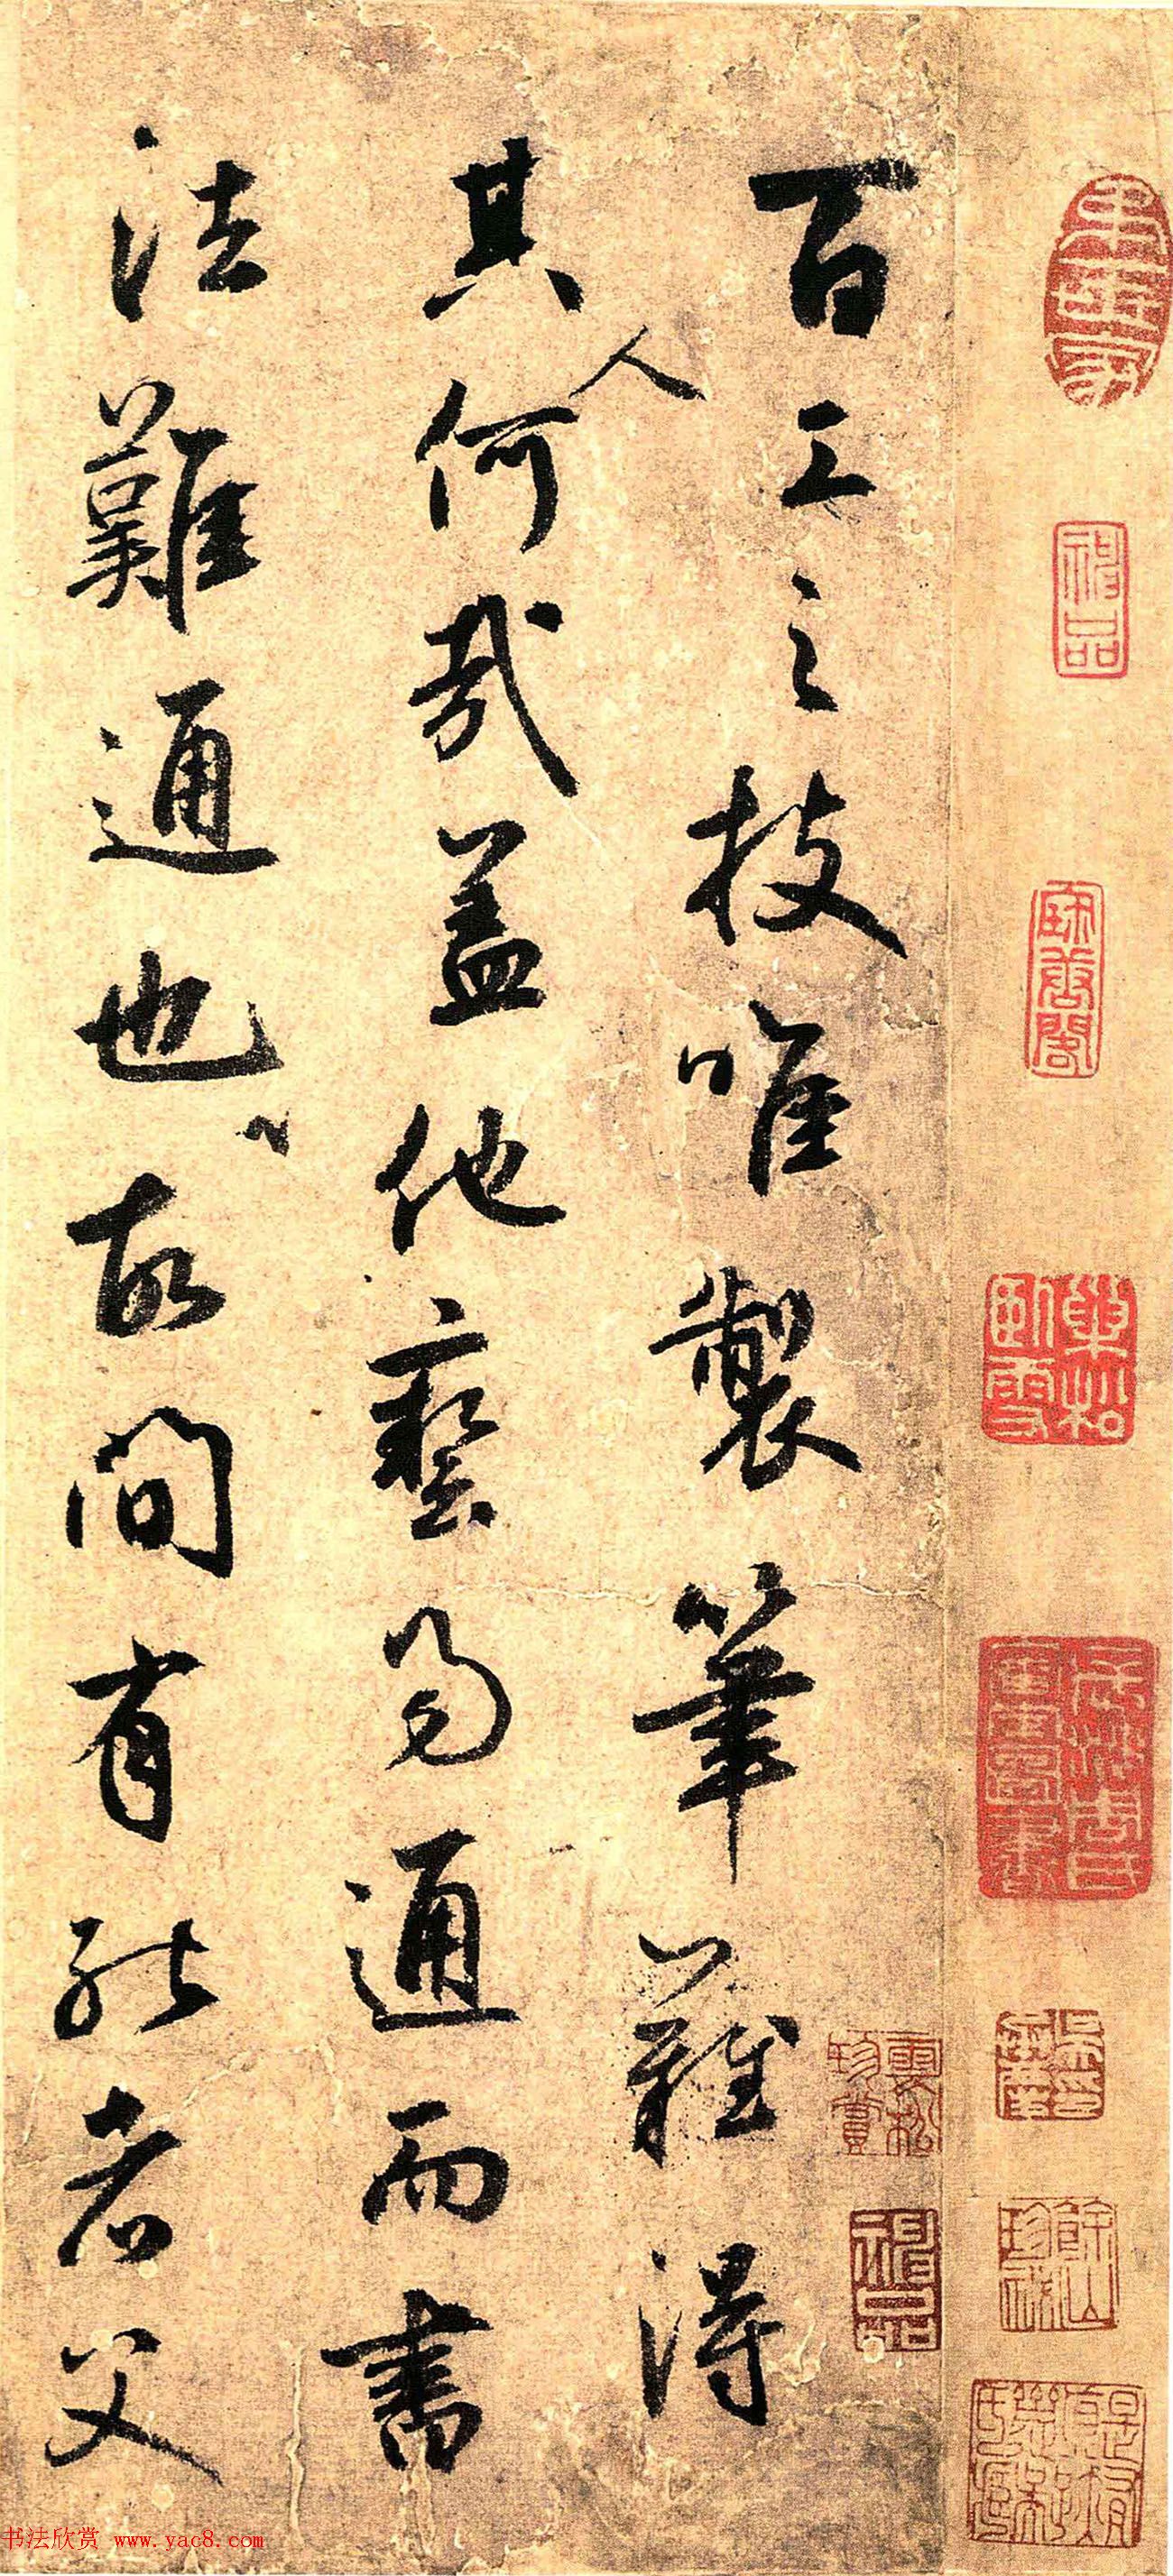 神品
神品
百工之技唯製筆難得
其人何哉蓋他藝易通而書
法難通也故間有能者父
书法欣赏 www.yac8.com